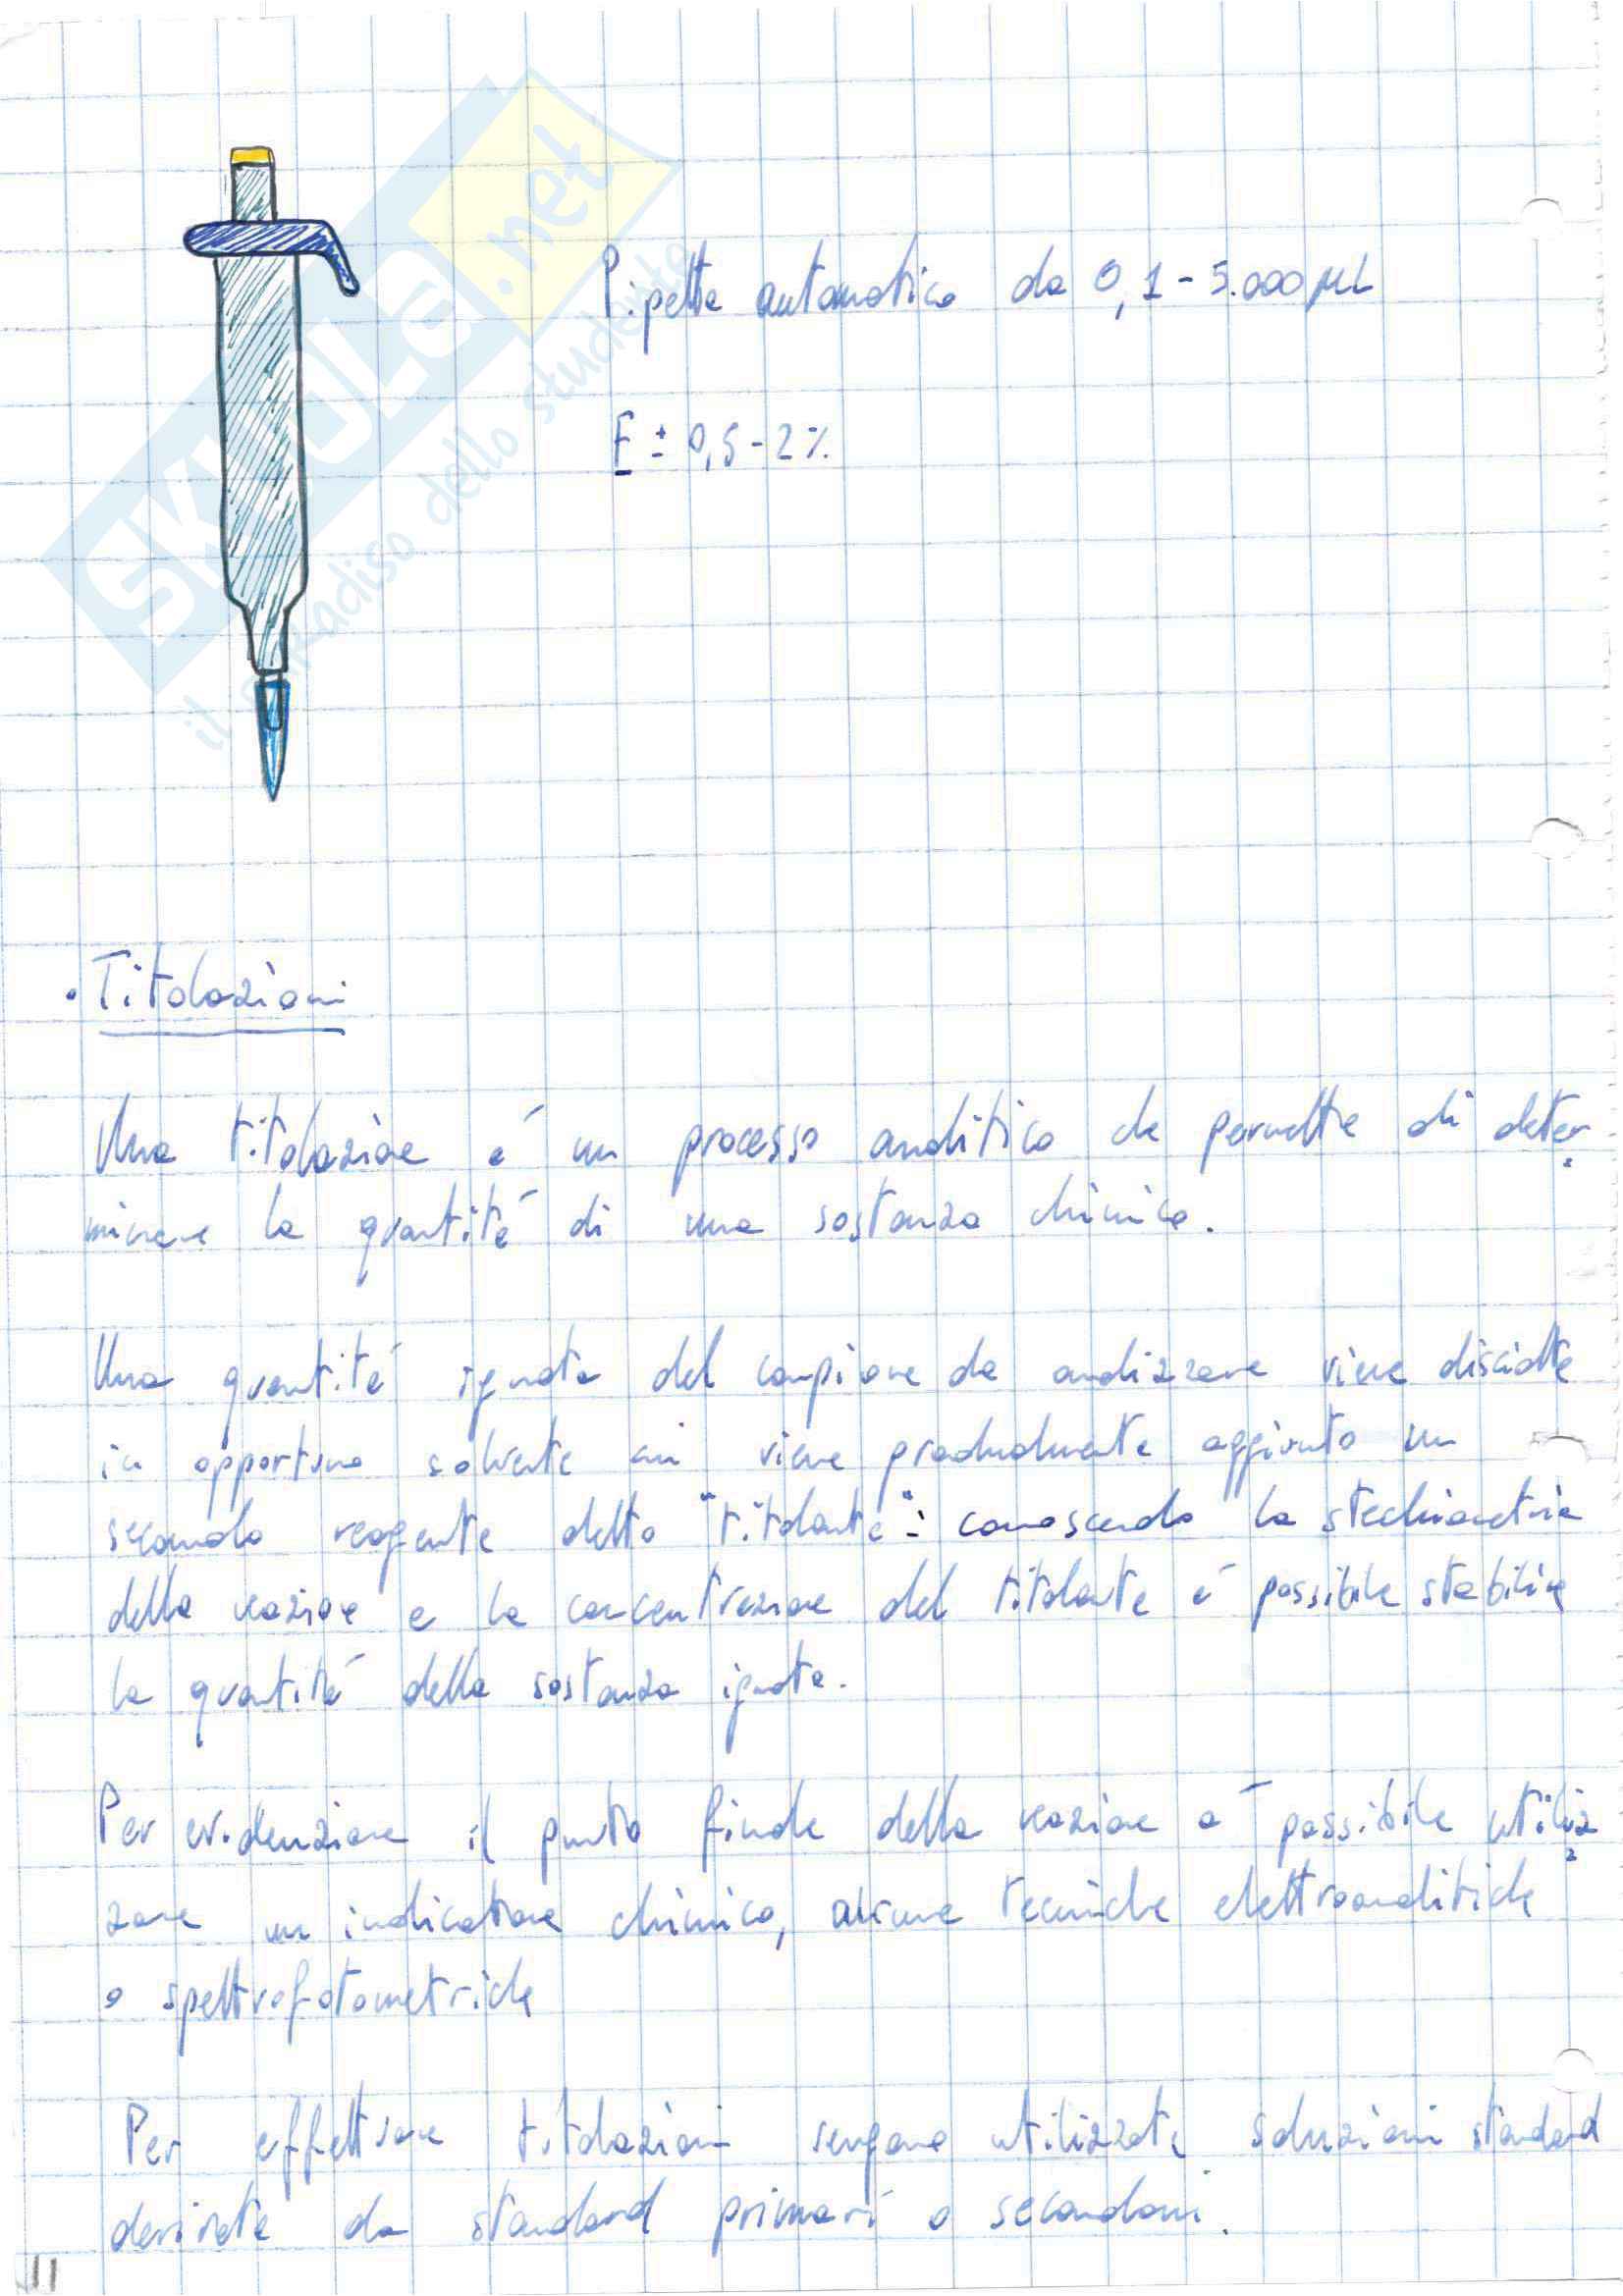 Pipetta automatica da 0,1 - 5.000 µL
E ± 0,5 - 2%
SKUOLA.net
il paradiso dello studente
• Titolazioni
Una titolazione é un processo analitico che permette di deter
minare la quantitá di una sostanza chimica.
Una quantitá ignota del campione da analizzare viene disciolta
in opportuno solvente cui viene gradualmente aggiunto un
secondo reagente detto "titolante": conoscendo la stechiometria
della reazione e la concentrazione del titolante é possibile stabilire
la quantitá della sostanza ignota.
Per evidenziare il punto finale della reazione é possibile utiliz
zare un indicatore chimico, alcune tecniche elettroanalitiche
o spettrofotometriche
Per effettuare titolazioni vengono utilizzate soluzioni standard
derivate da standard primari o secondari.
11